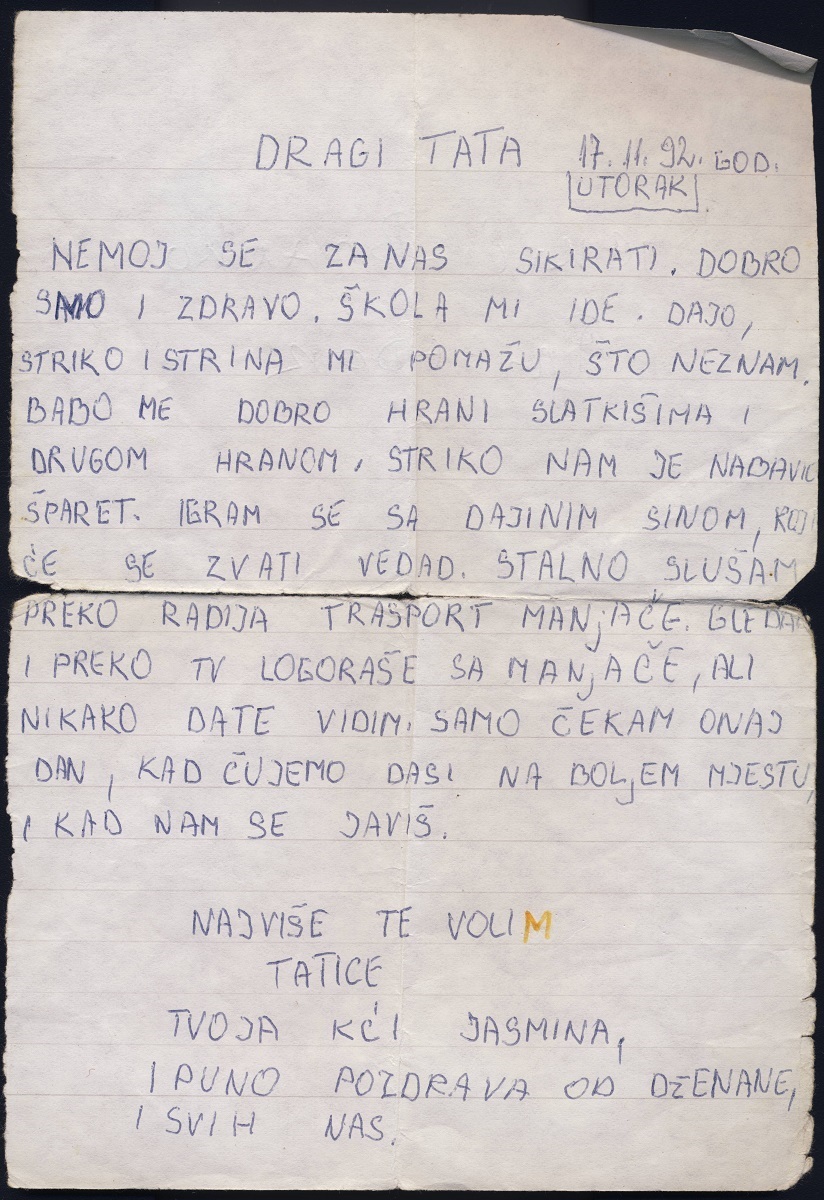 DRAGI TATA 17.11.92. GOD.
UTORAK
NEMOJ SE ZA NAS SIKIRATI. DOBRO
SMO I ZDRAVO. ŠKOLA MI IDE. DAJO,
STRIKO I STRINA MI POMAŽU, ŠTO NEZNAM.
BABO ME DOBRO HRANI SLATKIŠIMA I
DRUGOM HRANOM, STRIKO NAM JE NABAVIO
ŠPARET. IGRAM SE SA DAJINIM SINOM, KOJI
ĆE SE ZVATI VEDAD. STALNO SLUŠAM
PREKO RADIJA TRASPORT MANjAČE. GLEDAM
I PREKO TV LOGORAŠE SA MANjAČE, ALI
NIKAKO DATE VIDIM. SAMO ČEKAM ONAJ
DAN, KAD ČUJEMO DASI NA BOLjEM MJESTU,
I KAD NAM SE JAVIŠ.
NAJVIŠE TE VOLIM
TATICE
TVOJA KĆI JASMINA,
I PUNO POZDRAVA OD DŽENANE,
I SVIH NAS.